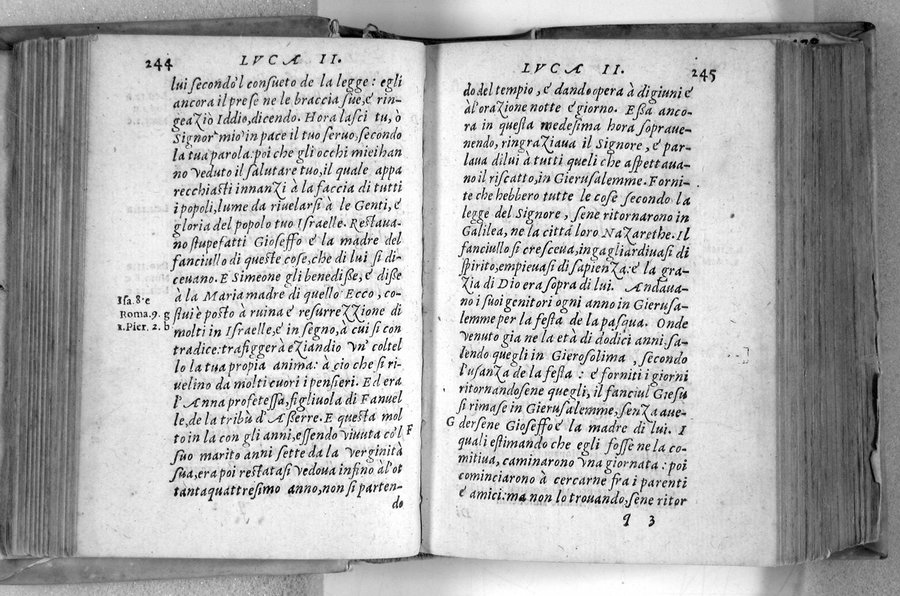 244 LVCAE II.
lui secondo'l consueto de la legge: egli
ancora il prese ne le braccia sue, é rin-
geaziò Iddio, dicendo. Hora lasci tu, ò
Signor mio in pace il tuo seruo, secondo
la tua parola: poi che gli occhi miei han
no veduto il salutare tuo, il quale appa
recchiasti innanzi à la faccia di tutti
i popoli, lume da riuelarsi à le Genti, é
gloria del popolo tuo Israelle. Restaua-
no stupefatti Gioseffo é la madre del
fanciullo di queste cose, che di lui si di-
ceuano. E Simeone gli benedisse, é disse
à la Maria madre di quello Ecco, co-
stui è posto à ruina é resurrezzione di
molti in Israelle, é in segno, à cui si con
tradice: trafiggerà eziandio vn' coltel
lo la tua propia anima: à ciò che si ri-
uelino da molti cuori i pensieri. Ed era
l'Anna profetessa, figliuola di Fanuel
le, de la tribù d'Asserre. E questa mol
to in la con gli anni, essendo viuuta co'l
suo marito anni sette da la verginità
sua, era poi restatasi vedoua infino à l'ot
tantaquattresimo anno, non si parten-
do
Isa.8. e
Roma.9. g
1.Pier. 2. b
F
LVCAE II. 245
do del tempio, é dando opera à digiuni é
à l'orazione notte é giorno. Essa anco-
ra in questa medesima hora soprauе-
nendo, ringraziaua il Signore, é par-
laua di lui à tutti queli che aspettaua-
no il riscatto, in Gierusalemme. Forni-
te che hebbero tutte le cose secondo la
legge del Signore, sene ritornarono in
Galilea, ne la città loro Nazarethe. Il
fanciullo si cresceua, ingagliardiuasi di
spirito, empieuasi di sapienza: é la gra-
zia di Dio era sopra di lui. Andaua-
no i suoi genitori ogni anno in Gierusa-
lemme per la festa de la pasqua. Onde
venuto gia ne la età di dodici anni, sa-
lendo quegli in Gierosolima, secondo
l'usanza de la festa: é forniti i giorni
ritornandosene quegli, il fanciul Giesu
si rimase in Gierusalemme, senza aue-
dersene Gioseffo é la madre di lui. I
quali estimando che egli fosse ne la co-
mitiua, caminarono vna giornata: poi
cominciarono à cercarne fra i parenti
é amici: ma non lo trouando, sene ritor
G
q 3